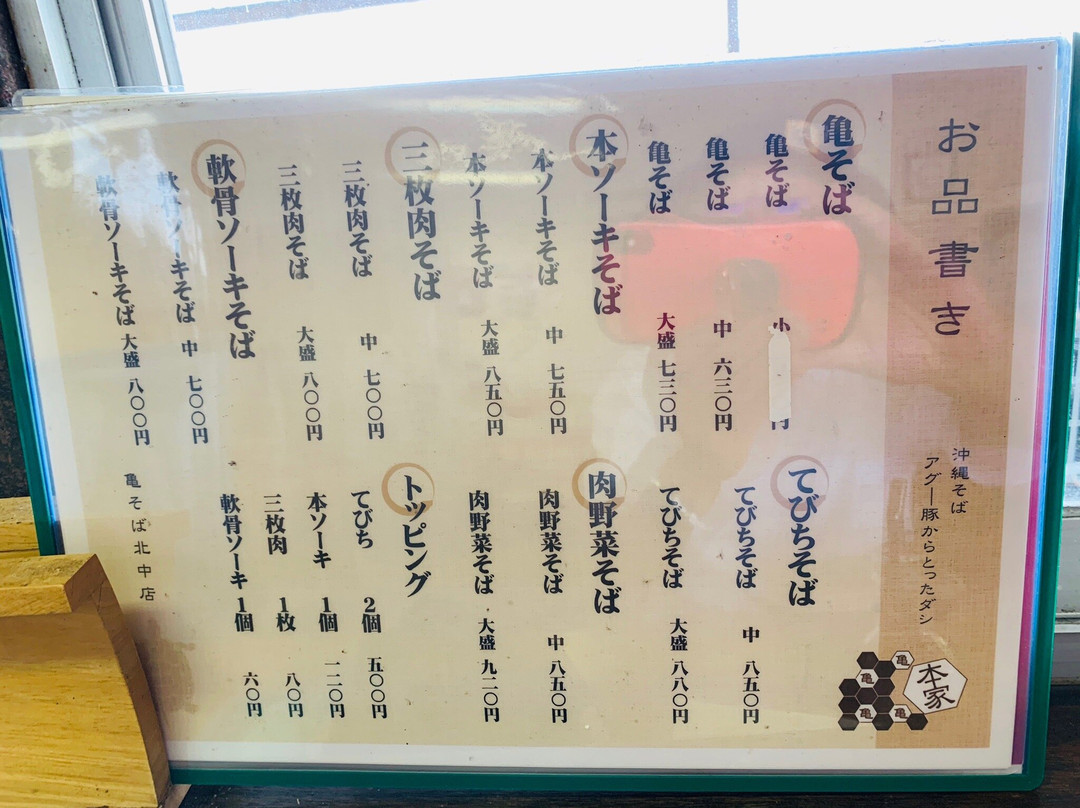 お品書き
沖縄そば
アグー豚からとったダシ
本家
亀
亀
亀
亀
亀そば
亀そば 小 円
亀そば 中 六三〇円
亀そば 大盛 七三〇円
本ソーキそば
本ソーキそば 中 七五〇円
本ソーキそば 大盛 八五〇円
三枚肉そば
三枚肉そば 中 七〇〇円
三枚肉そば 大盛 八〇〇円
軟骨ソーキそば
軟骨ソーキそば 中 七〇〇円
軟骨ソーキそば 大盛 八〇〇円
てびちそば
てびちそば 中 八五〇円
てびちそば 大盛 八八〇円
肉野菜そば
肉野菜そば 中 八五〇円
肉野菜そば 大盛 九二〇円
トッピング
てびち 2個 五〇〇円
本ソーキ 1個 一二〇円
三枚肉 1枚 八〇円
軟骨ソーキ 1個 六〇円
亀そば北中店